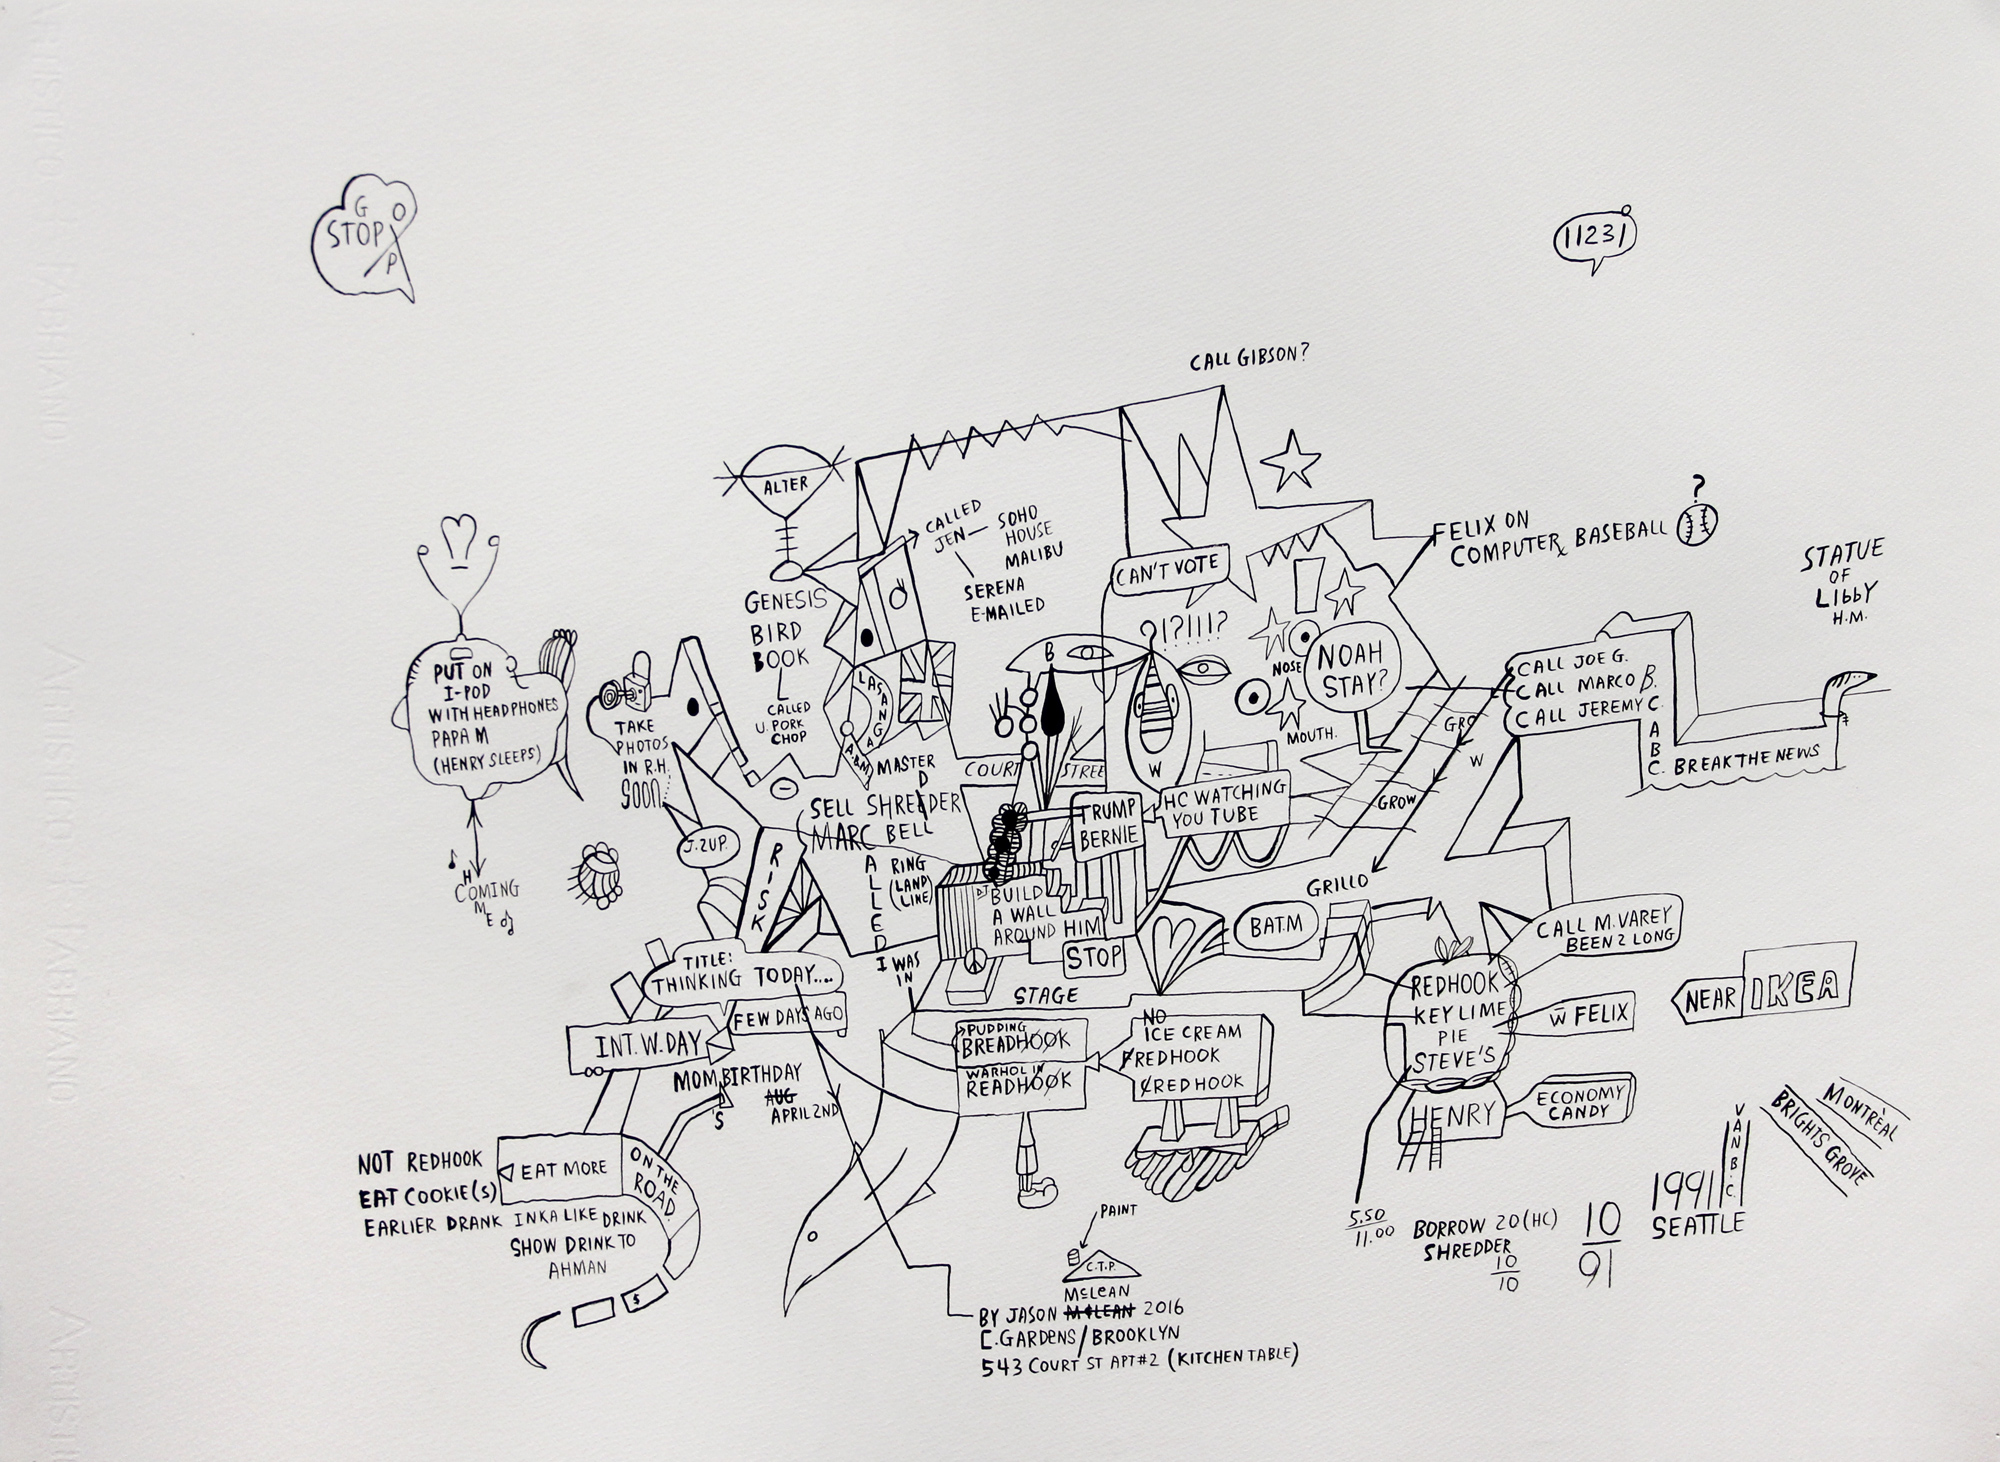 G O
STOP
P
11231
CALL GIBSON?
ALTER
CALLED
JEN — SOHO
HOUSE
MALIBU
SERENA
E-MAILED
CAN'T VOTE
!?!!!?
FELIX ON
COMPUTER BASEBALL
?
STATUE
OF
LIbbY
H.M.
GENESIS
BIRD
BOOK
CALLED
U. PORK
CHOP
LASANGA
B
NOSE
NOAH
STAY?
MOUTH.
CALL JOE G.
CALL MARCO B.
CALL JEREMY C.
A
B
C. BREAK THE NEWS
PUT ON
I-POD
WITH HEADPHONES
PAPA M
(HENRY SLEEPS)
TAKE
PHOTOS
IN R.H.
SOON
J. 2UP.
H
COMING
M
E
MASTER
D
COURT STREET
W
GRO
W
GROW
SELL SHREDDER
MARC BELL
HC WATCHING
YOU TUBE
TRUMP
BERNIE
RISK
ALLED
RING
(LAND
LINE)
BUILD
A WALL
AROUND HIM
STOP
GRILLO
BAT.M
CALL M. VAREY
BEEN 2 LONG
TITLE:
THINKING TODAY....
FEW DAYS AGO
I WAS
IN
STAGE
REDHOOK
KEY LIME
PIE
STEVE'S
W FELIX
NEAR IKEA
INT. W. DAY
PUDDING
BREADHOOK
WARHOL IN
READHOOK
NO
ICE CREAM
REDHOOK
RED HOOK
MOM BIRTHDAY
'S
AUG
APRIL 2ND
HENRY
ECONOMY
CANDY
MONTRÈAL
BRIGHTS GROVE
VAN B.C.
NOT REDHOOK
EAT COOKIE(S)
EARLIER DRANK INKA LIKE DRINK
SHOW DRINK TO
AHMAN
EAT MORE
ON THE
ROAD.
$
5.50
11.00
BORROW 20 (HC)
SHREDDER
10
10
10
91
1991
SEATTLE
PAINT
C.T.P.
McLEAN
BY JASON McLEAN 2016
C. GARDENS / BROOKLYN
543 COURT ST APT #2 (KITCHEN TABLE)